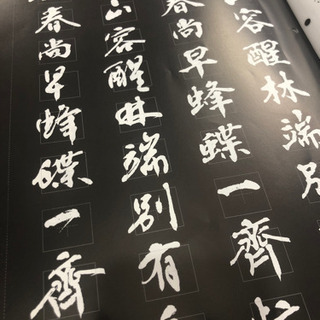 容醒林端別
春尚早蜂蝶一齊
山容醒林端別有
春尚早蜂蝶一齊